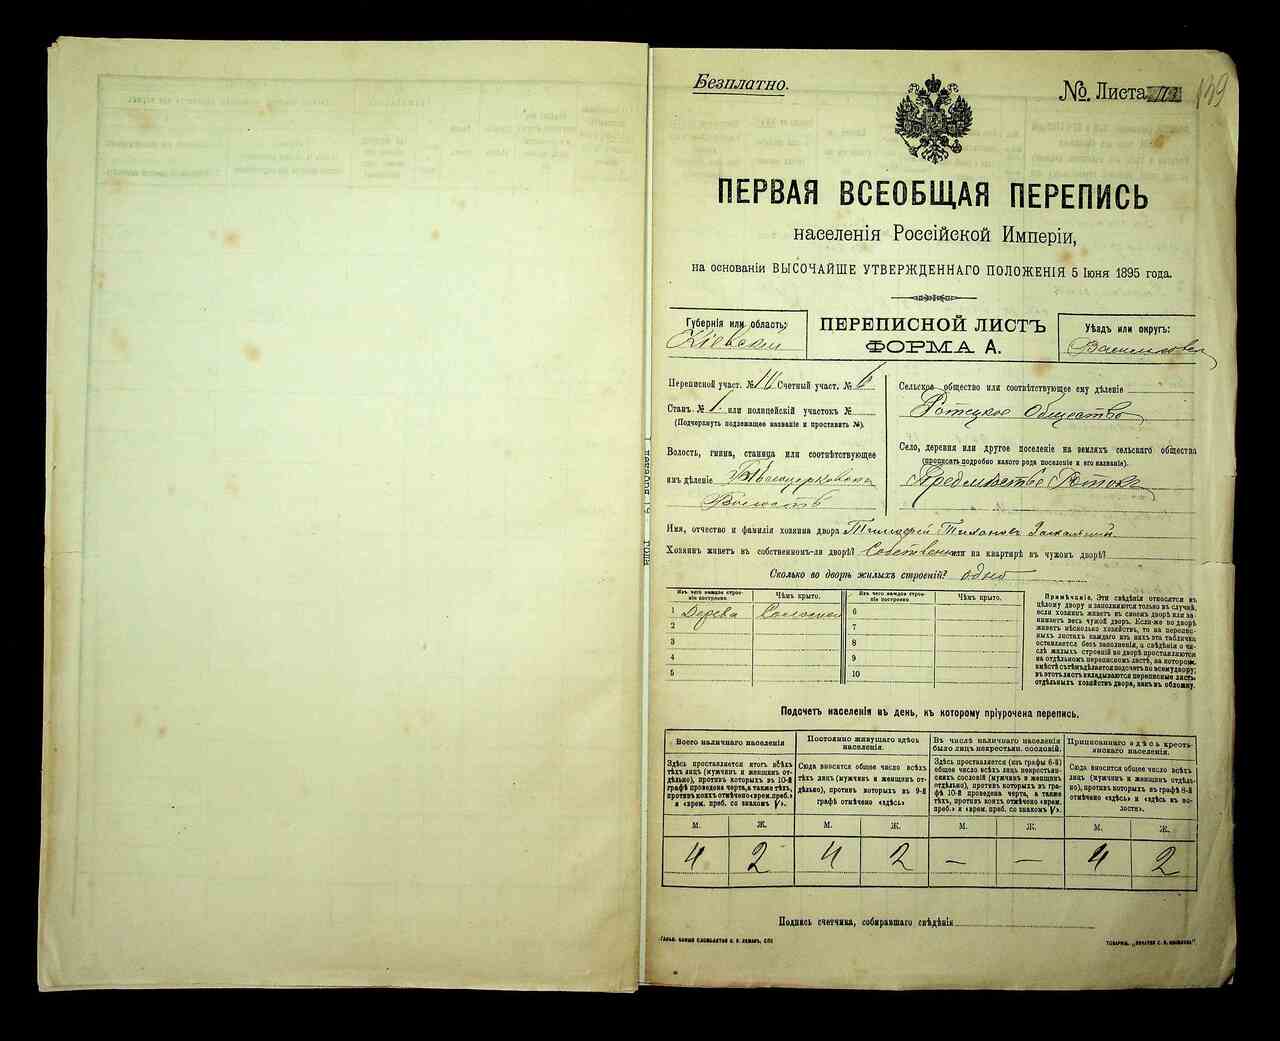 Безплатно.
No. Листа
139
ПЕРВАЯ ВСЕОБЩАЯ ПЕРЕПИСЬ
населенія Россійской Имперіи,
на основаніи ВЫСОЧАЙШЕ УТВЕРЖДЕННАГО ПОЛОЖЕНІЯ 5 Іюня 1895 года.
Губернія или область:
Кіевская
ПЕРЕПИСНОЙ ЛИСТЪ
ФОРМА А.
Уѣздъ или округъ:
Васильковск
Переписной участ. № 16 Счетный участ. № 6
Станъ № 1. или полицейскій участокъ №
(Подчеркнуть подлежащее названіе и проставить №).
Волость, гмина, станица или соотвѣтствующее
имъ дѣленіе Бѣлоцерковская
Волость
Сельское общество или соотвѣтствующее ему дѣленіе
Ротокское Общество
Село, деревня или другое поселеніе на земляхъ сельскаго общества
(прописать подробно какого рода поселеніе и его названіе).
Предмѣстье Ротокъ
Имя, отчество и фамилія хозяина двора Тимофей Тихоновъ
Хозяинъ живетъ въ собственномъ-ли дворѣ? Собственн или на квартирѣ въ чужомъ дворѣ?
Сколько во дворѣ жилыхъ строеній? одно
Изъ чего каждое строеніе построено. Чѣмъ крыто. Изъ чего каждое строеніе построено. Чѣмъ крыто.
1 Дерева Соломой 6
2 7
3 8
4 9
5 10
Примѣчаніе. Эти свѣдѣнія относятся къ
цѣлому двору и заполняются только въ случаѣ,
если хозяинъ живетъ въ своемъ дворѣ или за-
нимаетъ весь чужой дворъ. Если-же во дворѣ
живетъ нѣсколько хозяйствъ, то на перепис-
ныхъ листахъ каждаго изъ нихъ эта табличка
оставляется безъ заполненія, а свѣдѣнія о чи-
слѣ жилыхъ строеній во дворѣ проставляются
на отдѣльномъ переписномъ листѣ, на которомъ
вмѣстѣ съ тѣмъ дѣлается подсчетъ по всему двору;
въ этотъ листъ вкладываются переписные листы
отдѣльныхъ хозяйствъ двора, какъ въ обложку.
Подсчетъ населенія въ день, къ которому пріурочена перепись.
Всего наличнаго населенія
Здѣсь проставляется итогъ всѣхъ
тѣхъ лицъ (мужчинъ и женщинъ от-
дѣльно), противъ которыхъ въ 10-й
графѣ проведена черта, а также тѣхъ,
противъ коихъ отмѣчено «врем. преб.»
и «врем. преб. со знакомъ V».
Постоянно живущаго здѣсь
населенія.
Сюда вносится общее число всѣхъ
тѣхъ лицъ (мужчинъ и женщинъ от-
дѣльно), противъ которыхъ въ 9-й
графѣ отмѣчено «здѣсь»
Въ числѣ наличнаго населенія
было лицъ некрестьян. сословій.
Здѣсь проставляется (изъ графы 6-й)
общее число всѣхъ лицъ некрестьян-
скихъ сословій (мужчинъ и женщинъ
отдѣльно), противъ которыхъ въ гра-
фѣ 10-й проведена черта, а также
тѣхъ, противъ коихъ отмѣчено «врем.
преб.» и «врем. преб. со знакомъ V».
Приписаннаго здѣсь кресть-
янскаго населенія.
Сюда вносится общее число всѣхъ
лицъ (мужчинъ и женщинъ отдѣль-
но), противъ которыхъ въ графѣ 8-й
отмѣчено «здѣсь» и «здѣсь въ во-
лости».
М. Ж. М. Ж. М. Ж. М. Ж.
4 2 4 2 — — 4 2
Подпись счетчика, собиравшаго свѣдѣнія